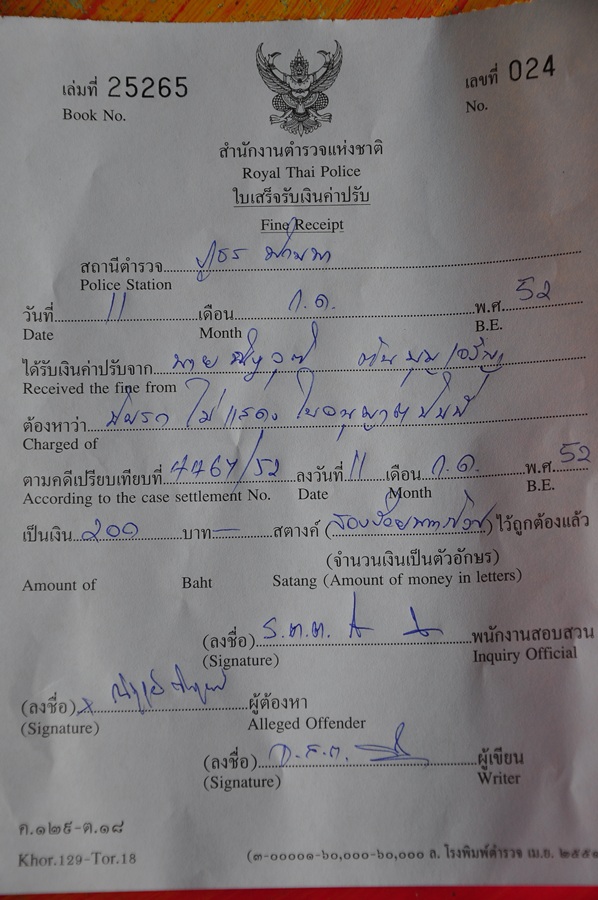 เล่มที่ 25265 เลขที่ 024
Book No. No.
สำนักงานตำรวจแห่งชาติ
Royal Thai Police
ใบเสร็จรับเงินค่าปรับ
Fine Receipt
สถานีตำรวจ
Police Station
วันที่ 11 เดือน ก.ค. พ.ศ. 52
Date Month B.E.
ได้รับเงินค่าปรับจาก นาย
Received the fine from
ต้องหาว่า ขับรถ ไม่แสดง ใบอนุญาตขับขี่
Charged of
ตามคดีเปรียบเทียบที่ 4467/52 ลงวันที่ 11 เดือน ก.ค. พ.ศ. 52
According to the case settlement No. Date Month B.E.
เป็นเงิน 200 บาท — สตางค์ (สองร้อยบาทถ้วน) ไว้ถูกต้องแล้ว
(จำนวนเงินเป็นตัวอักษร)
Amount of Baht Satang (Amount of money in letters)
(ลงชื่อ) ร.ต.ต. พนักงานสอบสวน
(Signature) Inquiry Official
(ลงชื่อ) ผู้ต้องหา
(Signature) Alleged Offender
(ลงชื่อ) ด.ต. ผู้เขียน
(Signature) Writer
ค.๑๒๙-ต.๑๘
Khor.129-Tor.18 (๓-๐๐๐๐๑-๖๐,๐๐๐-๖๐,๐๐๐ ล. โรงพิมพ์ตำรวจ เม.ย. ๒๕๕๑